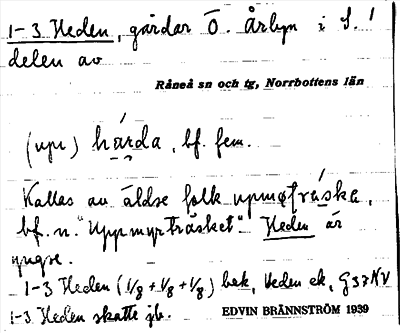 1-3 Heden, gårdar Ö. Årbyn i S.
delen av
Råneå sn och tg, Norrbottens län
(upr) härda, bf. fem.
Kallas av äldre folk upmøtráska,
bf. n. "Uppmyrträsket". Heden är
yngre.
1-3 Heden (1/8 + 1/8 + 1/8) bek, Heden ek, G37NV
1-3 Heden skatte jb. EDVIN BRÄNNSTRÖM 1939